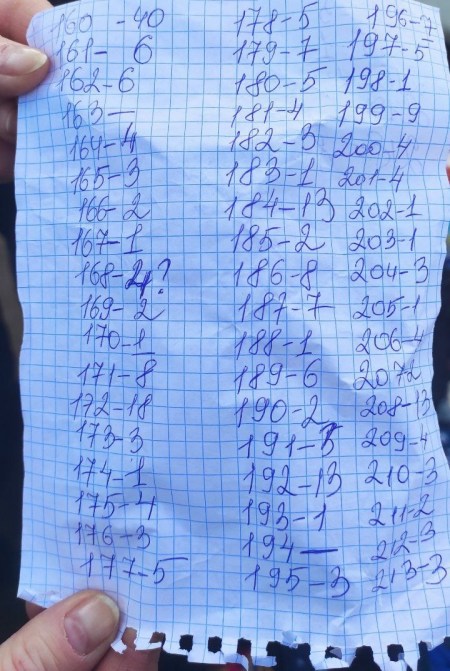 160 - 40
161- 6
162-6
163 —
164-4
165-3
166-2
167-1
168-24?
169-2
170-1
171-8
172-18
173-3
174-1
175-4
176-3
177-5
178-5
179-7
180-5
181-4
182-3
183-1
184-13
185-2
186-8
187-7
188-1
189-6
190-2
191-5
192-13
193-1
194 —
195-3
196-7
197-5
198-1
199-9
200-4
201-4
202-1
203-1
204-3
205-1
206-4
207 2
208-13
209-4
210-3
211-2
212-3
213-3